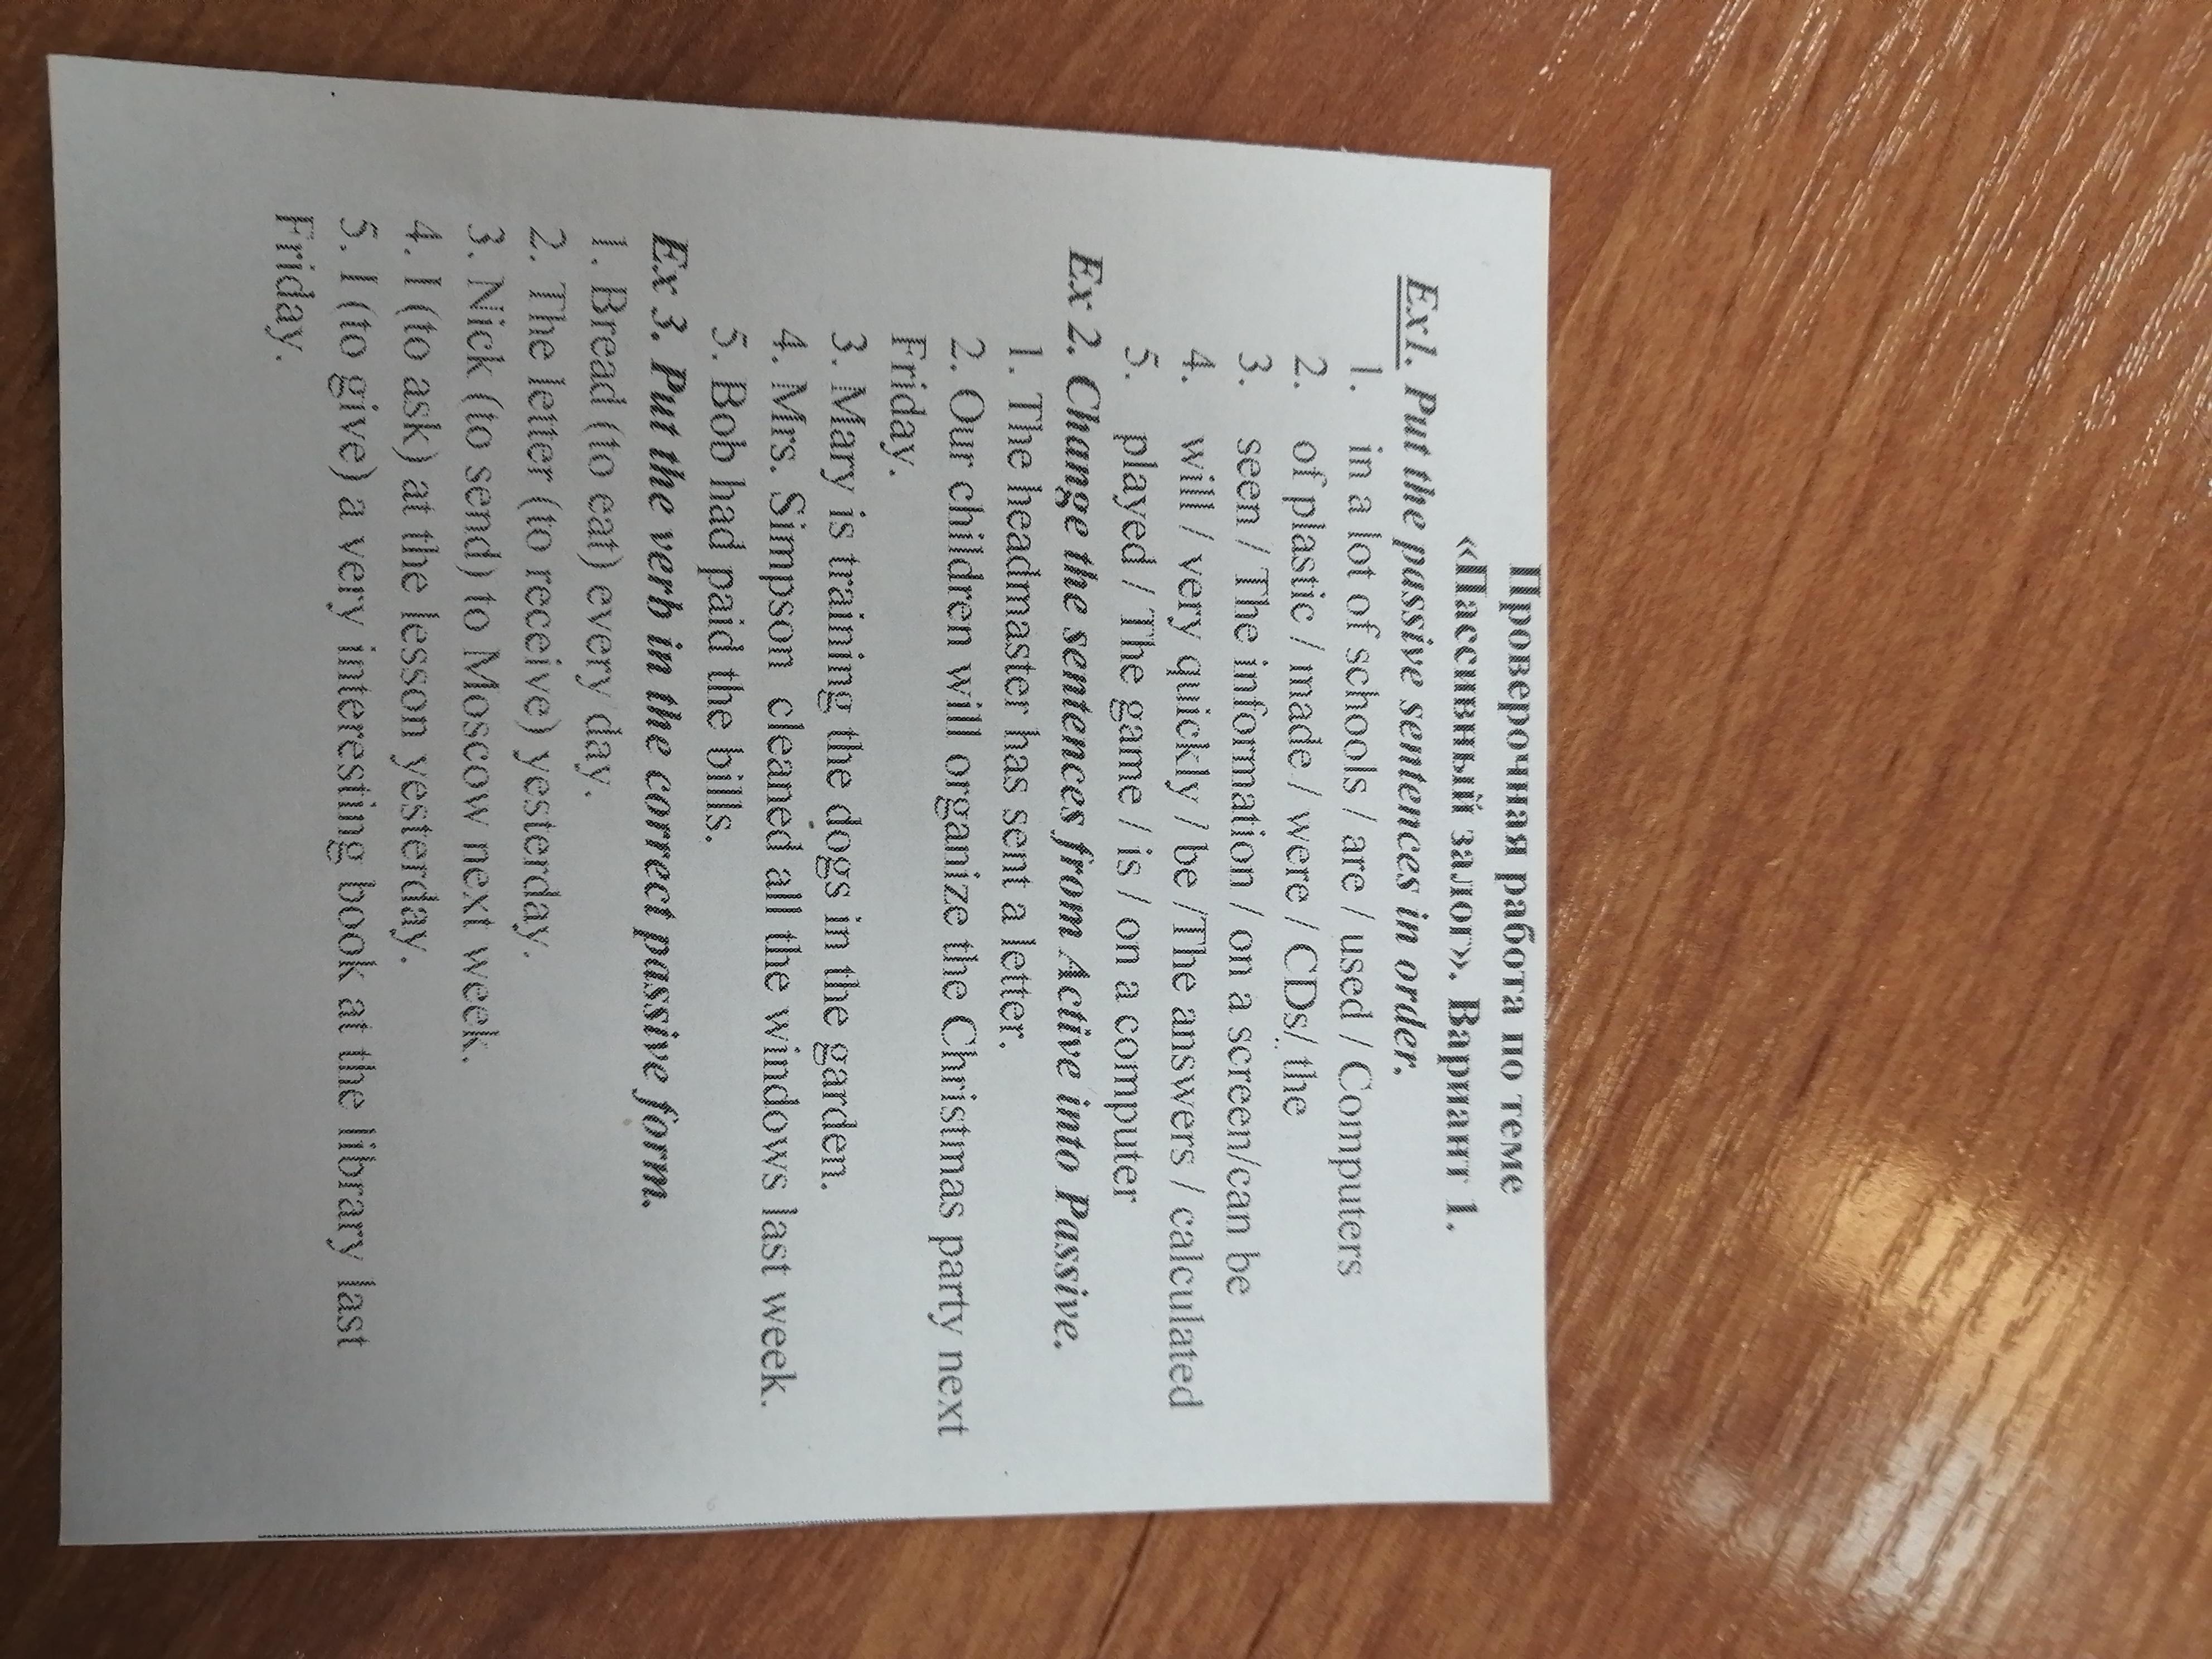 Проверочная работа по теме
«Пассивный залог». Вариант 1.
Ex1. Put the passive sentences in order.
1. in a lot of schools / are / used / Computers
2. of plastic / made / were / CDs/ the
3. seen / The information / on a screen/can be
4. will / very quickly / be /The answers / calculated
5. played / The game / is / on a computer
Ex 2. Change the sentences from Active into Passive.
1. The headmaster has sent a letter.
2. Our children will organize the Christmas party next
Friday.
3. Mary is training the dogs in the garden.
4. Mrs. Simpson cleaned all the windows last week.
5. Bob had paid the bills.
Ex 3. Put the verb in the correct passive form.
1. Bread (to eat) every day.
2. The letter (to receive) yesterday.
3. Nick (to send) to Moscow next week.
4. I (to ask) at the lesson yesterday.
5. I (to give) a very interesting book at the library last
Friday.